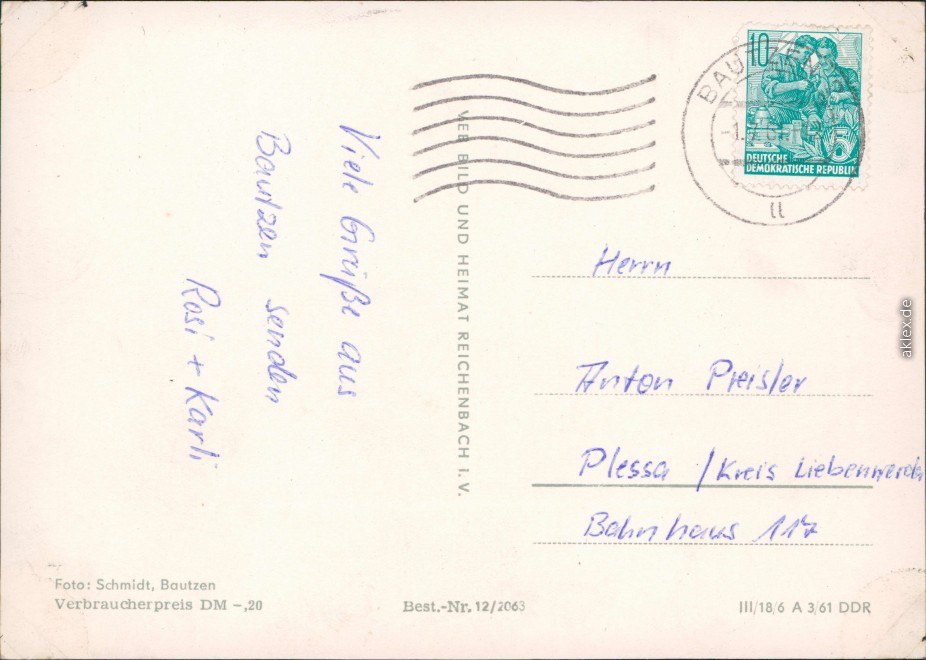 Viele Grüße aus
Bautzen senden
Rosi + Karli
VEB BILD UND HEIMAT REICHENBACH I. V.
BAUTZEN
10
5
DEUTSCHE
DEMOKRATISCHE REPUBLIK
Herrn
Anton Preisler
Plessa / Kreis Liebenwerda
Bahnhaus 117
Foto: Schmidt, Bautzen
Verbraucherpreis DM -,20
Best.-Nr. 12/2063
III/18/6 A 3/61 DDR
aklex.de